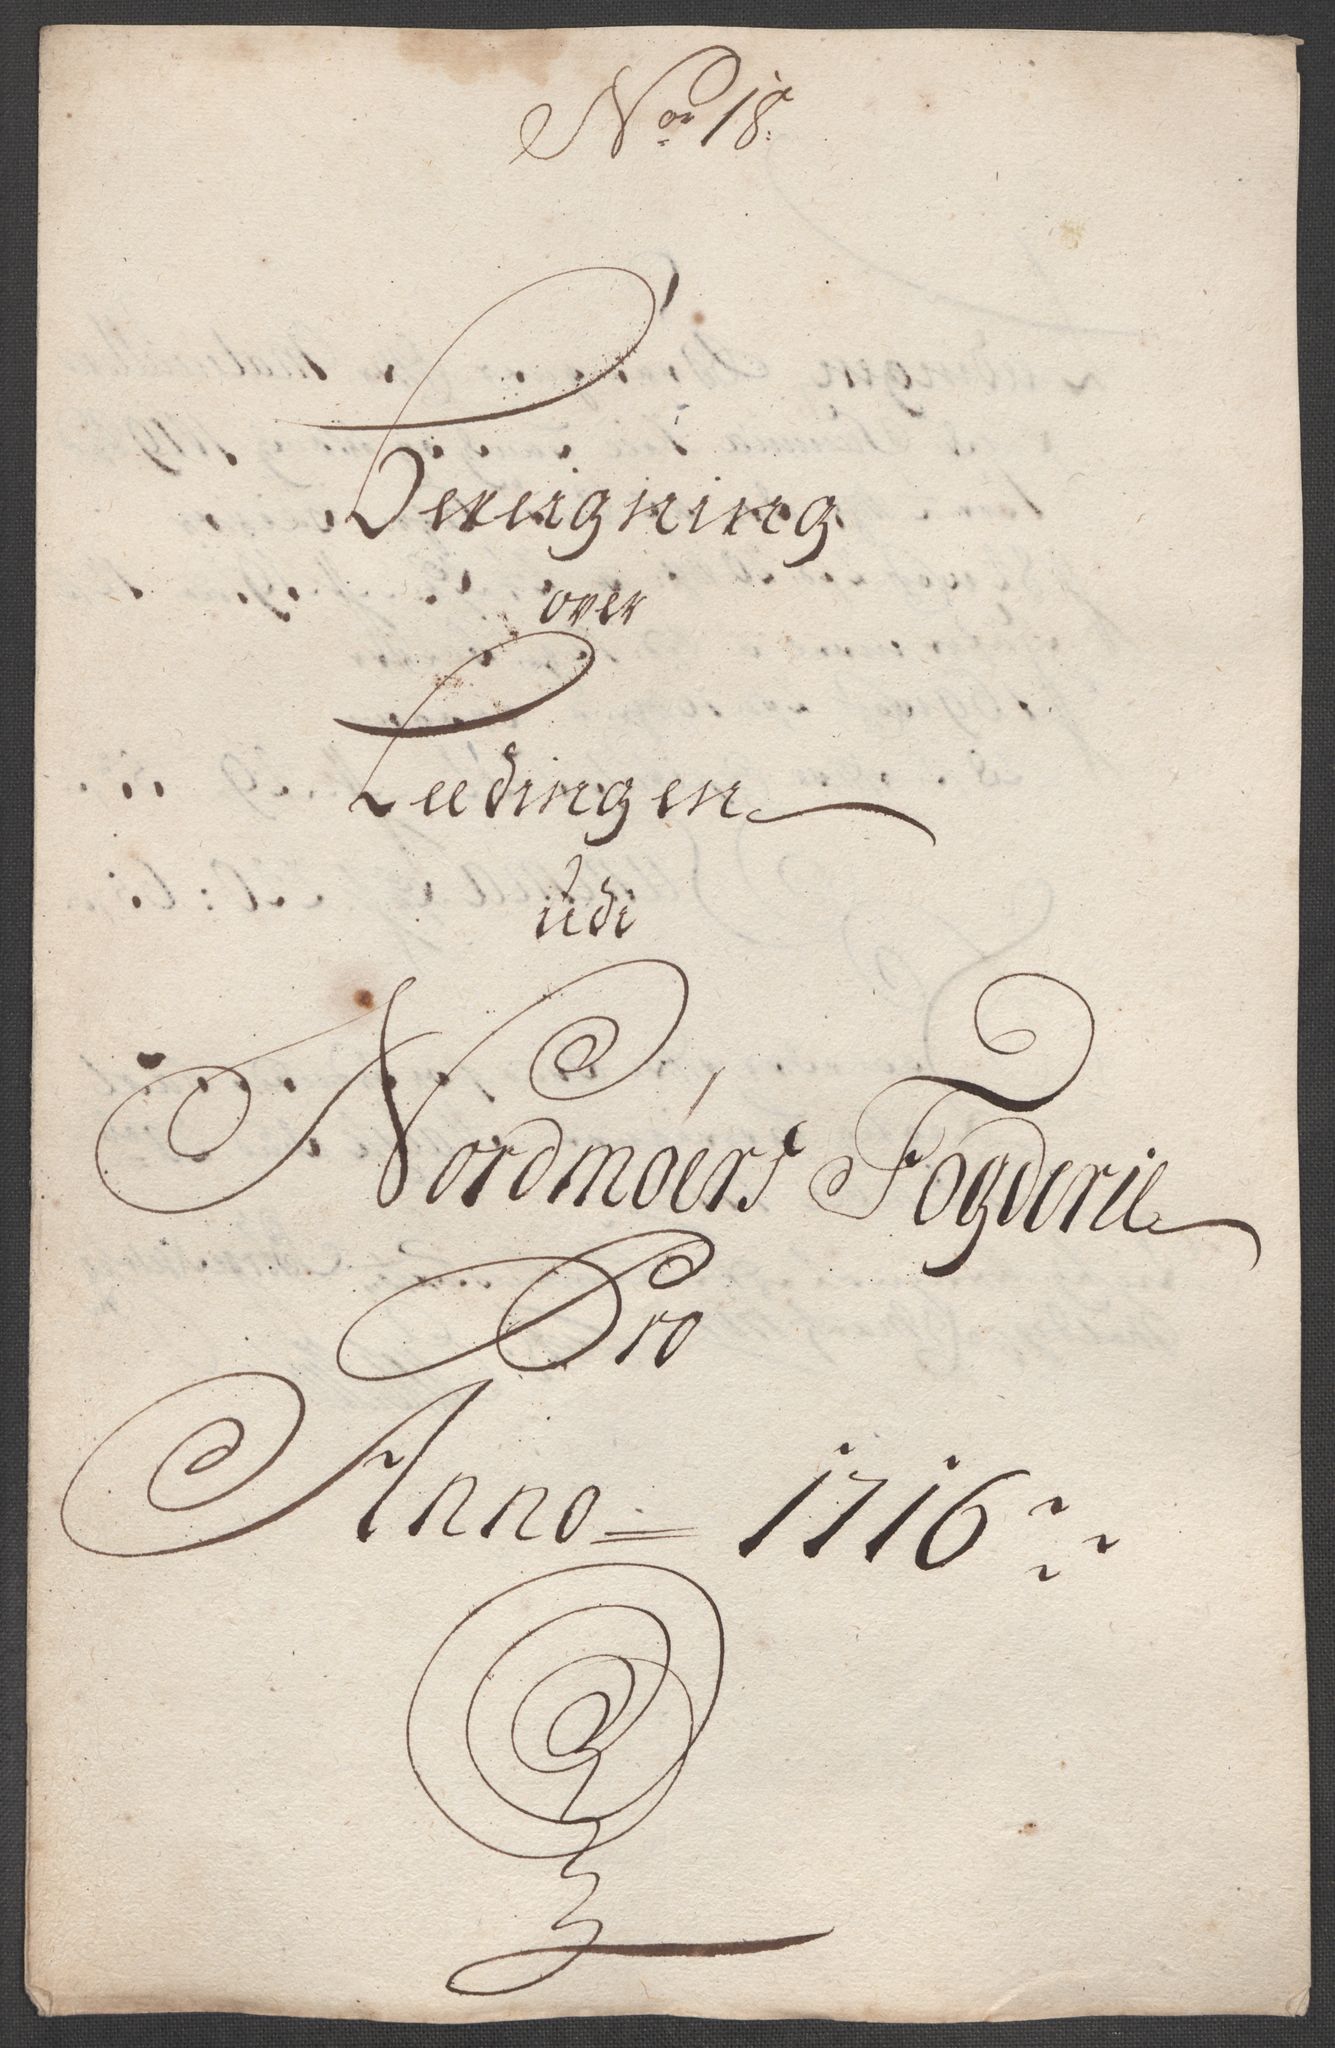 No 18
Bereigning
over
Leedingen
udi
Nordmøers Fogderie
Pro
Anno 1716